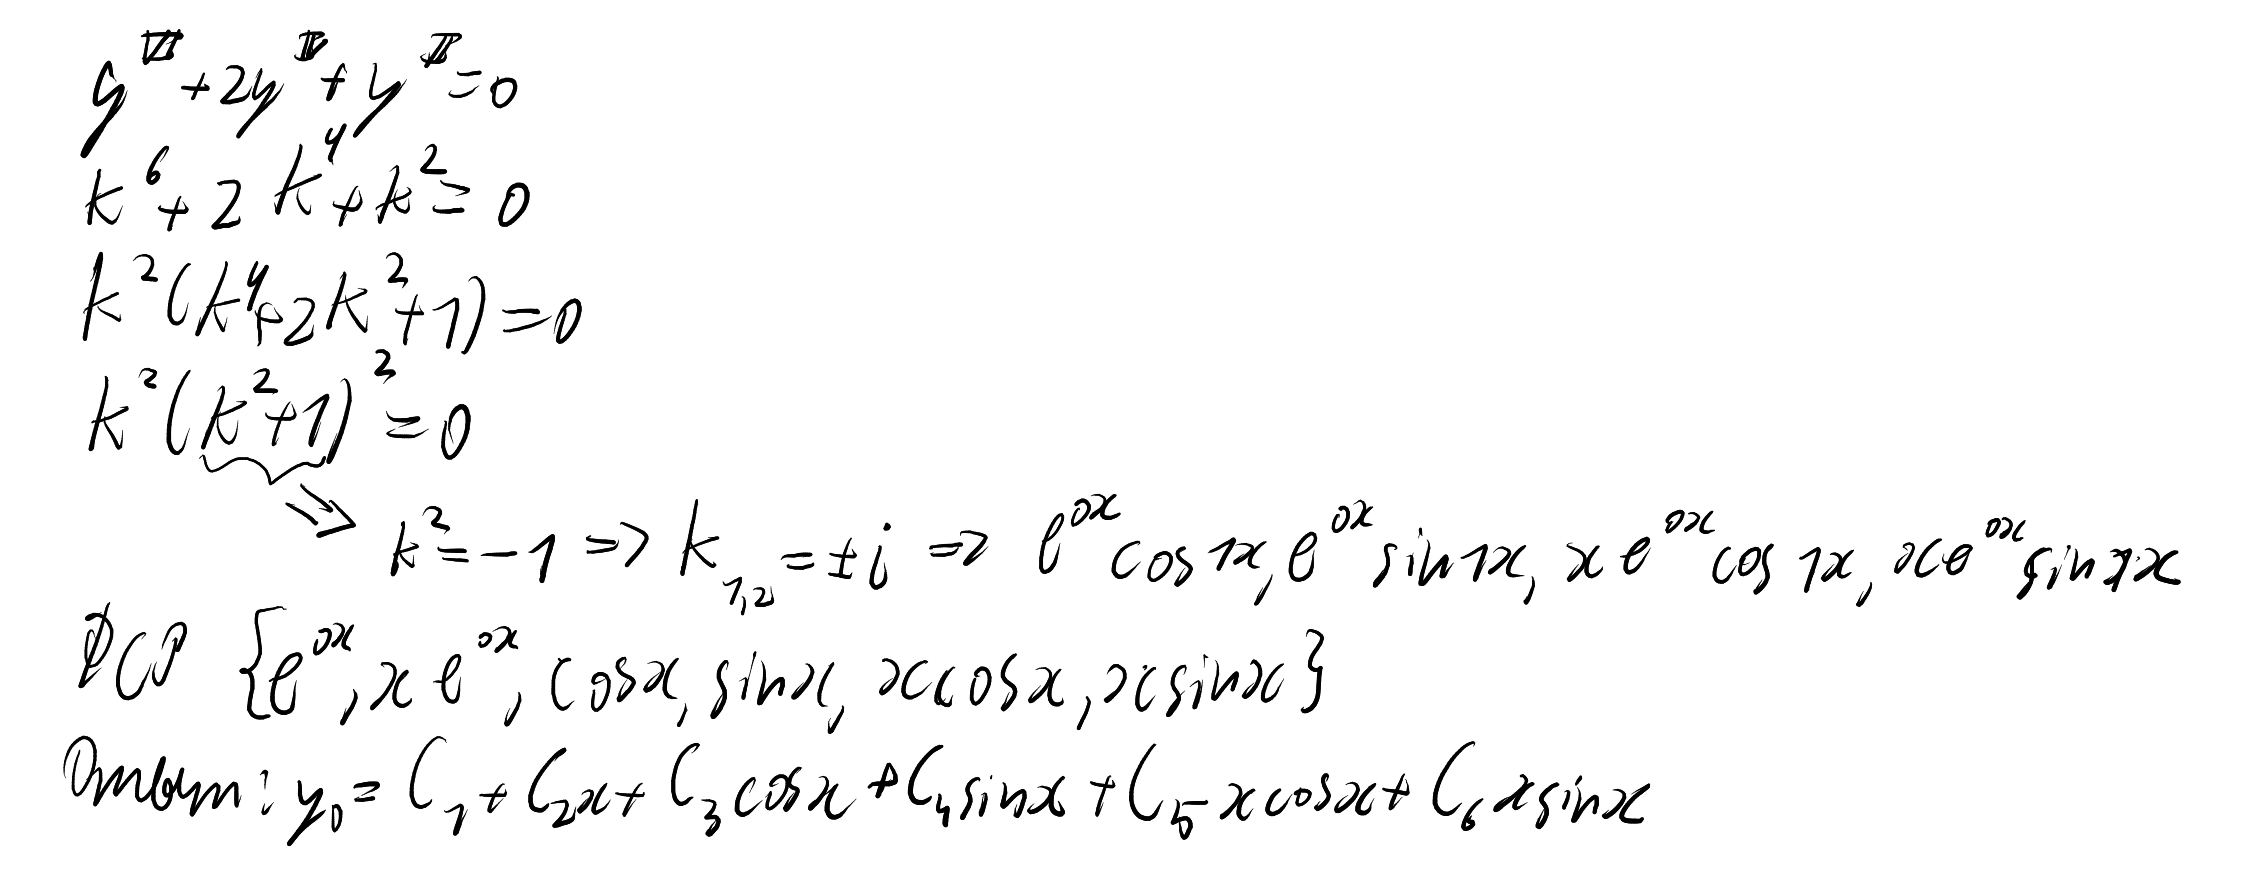 y^VI + 2y^IV + y^II = 0
k^6 + 2k^4 + k^2 = 0
k^2(k^4 + 2k^2 + 1) = 0
k^2(k^2 + 1)^2 = 0
⇒ k^2 = -1 ⇒ k_{1,2} = ±i ⇒ e^{0x} cos 1x, e^{0x} sin 1x, x e^{0x} cos 1x, x e^{0x} sin 1x
ФСР {e^{0x}, x e^{0x}, cos x, sin x, x cos x, x sin x}
Ответ: y_0 = C_1 + C_2 x + C_3 cos x + C_4 sin x + C_5 x cos x + C_6 x sin x